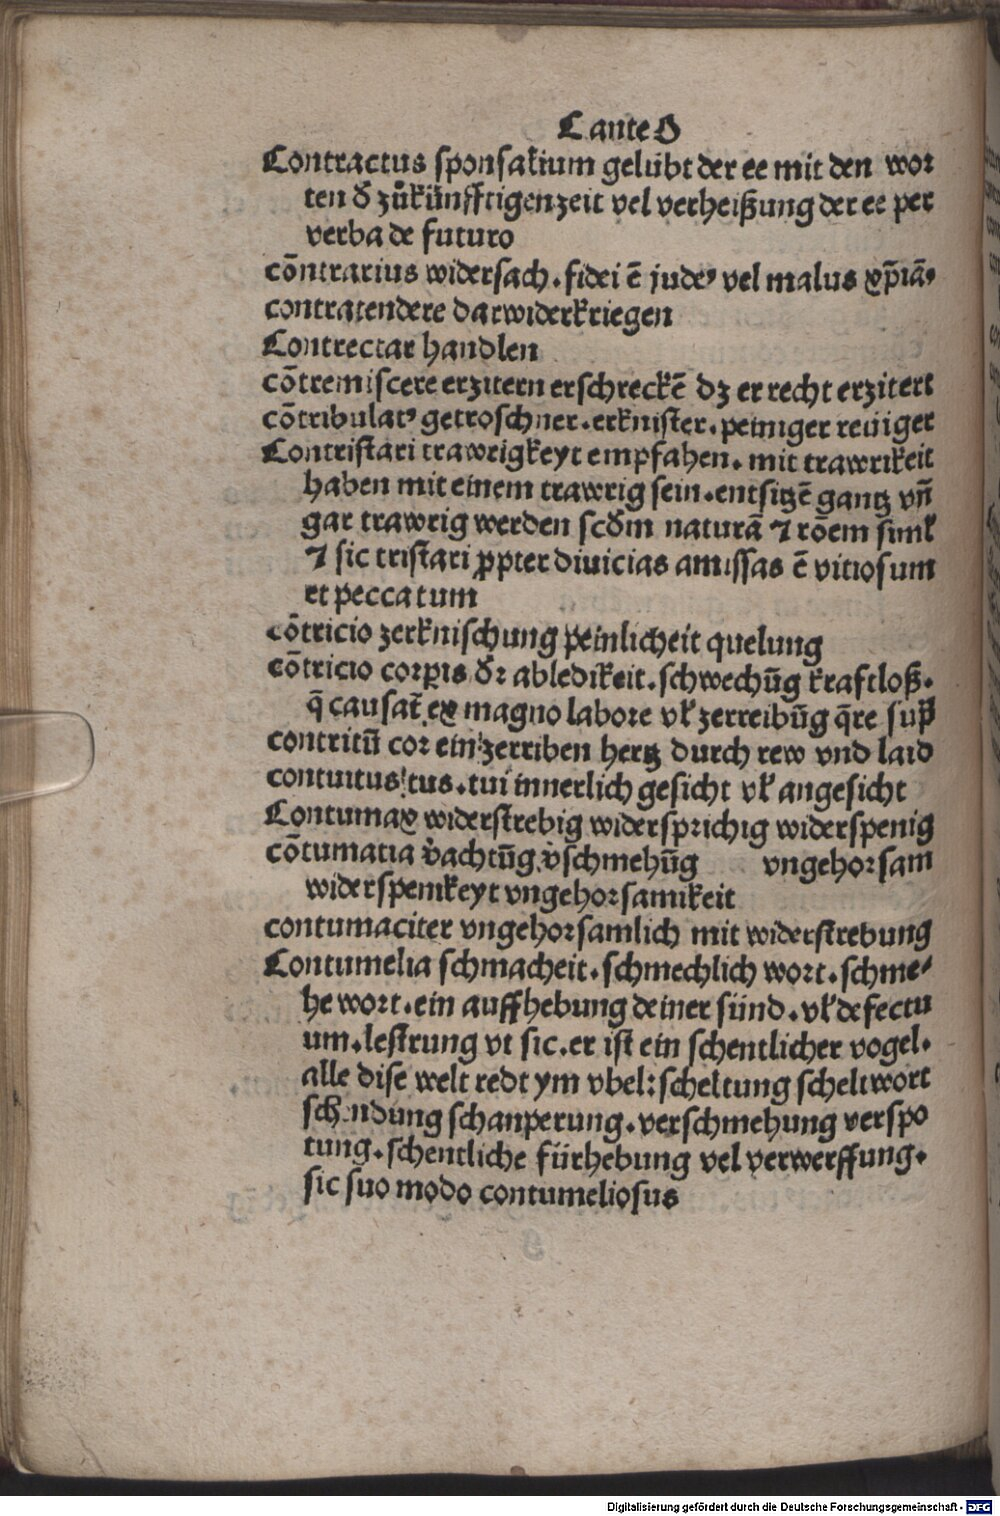 C ante O
Contractus sponsalium gelübt der ee mit den wor
ten đ zůkünfftigen zeit vel verheißung der ee per
verba de futuro
cōntrarius widersach. fidei ē jude⁹ vel malus xp̄iā⁹
contratendere darwiderkriegen
Contrectar handlen
cōtremiscere erzitern erschreckē dz er recht erzitert
cōtribulat⁹ getroschner. erknister. peiniger reuiger
Contristari trawrigkeyt empfahen. mit trawrikeit
haben mit einem trawrig sein. entsitzē gantz vn̄
gar trawrig werden scđm naturā ⁊ rōem simł
⁊ sic tristari ꝓpter diuicias amissas ē vitiosum
et peccatum
cōtricio zerknischung peinlicheit quelung
cōtricio corꝑis đr abledikeit. schwechūg kraftloß.
q̄ causat̄ ex magno labore vł zerreibūg q̄re sup̄
contritū cor ein zerriben hertz durch rew vnd laid
contuitus tus. tui innerlich gesicht vł angesicht
Contumax widerstrebig widersprichig widerspenig
cōtumatia v̄achtūg v̄schmehūg vngehorsam
widerspenikeyt vngehorsamikeit
contumaciter vngehorsamlich mit widerstrebung
Contumelia schmacheit. schmechlich wort. schme⸗
he wort. ein auffhebung deiner sünd. vł defectu
um. lestrung vt sic. er ist ein schentlicher vogel.
alle dise welt redt ym vbel: scheltung scheltwort
schendung schanperung. verschmehung verspo
tung. schentliche fürhebung vel verwerffung.
sic suo modo contumeliosus
Digitalisierung gefördert durch die Deutsche Forschungsgemeinschaft - DFG